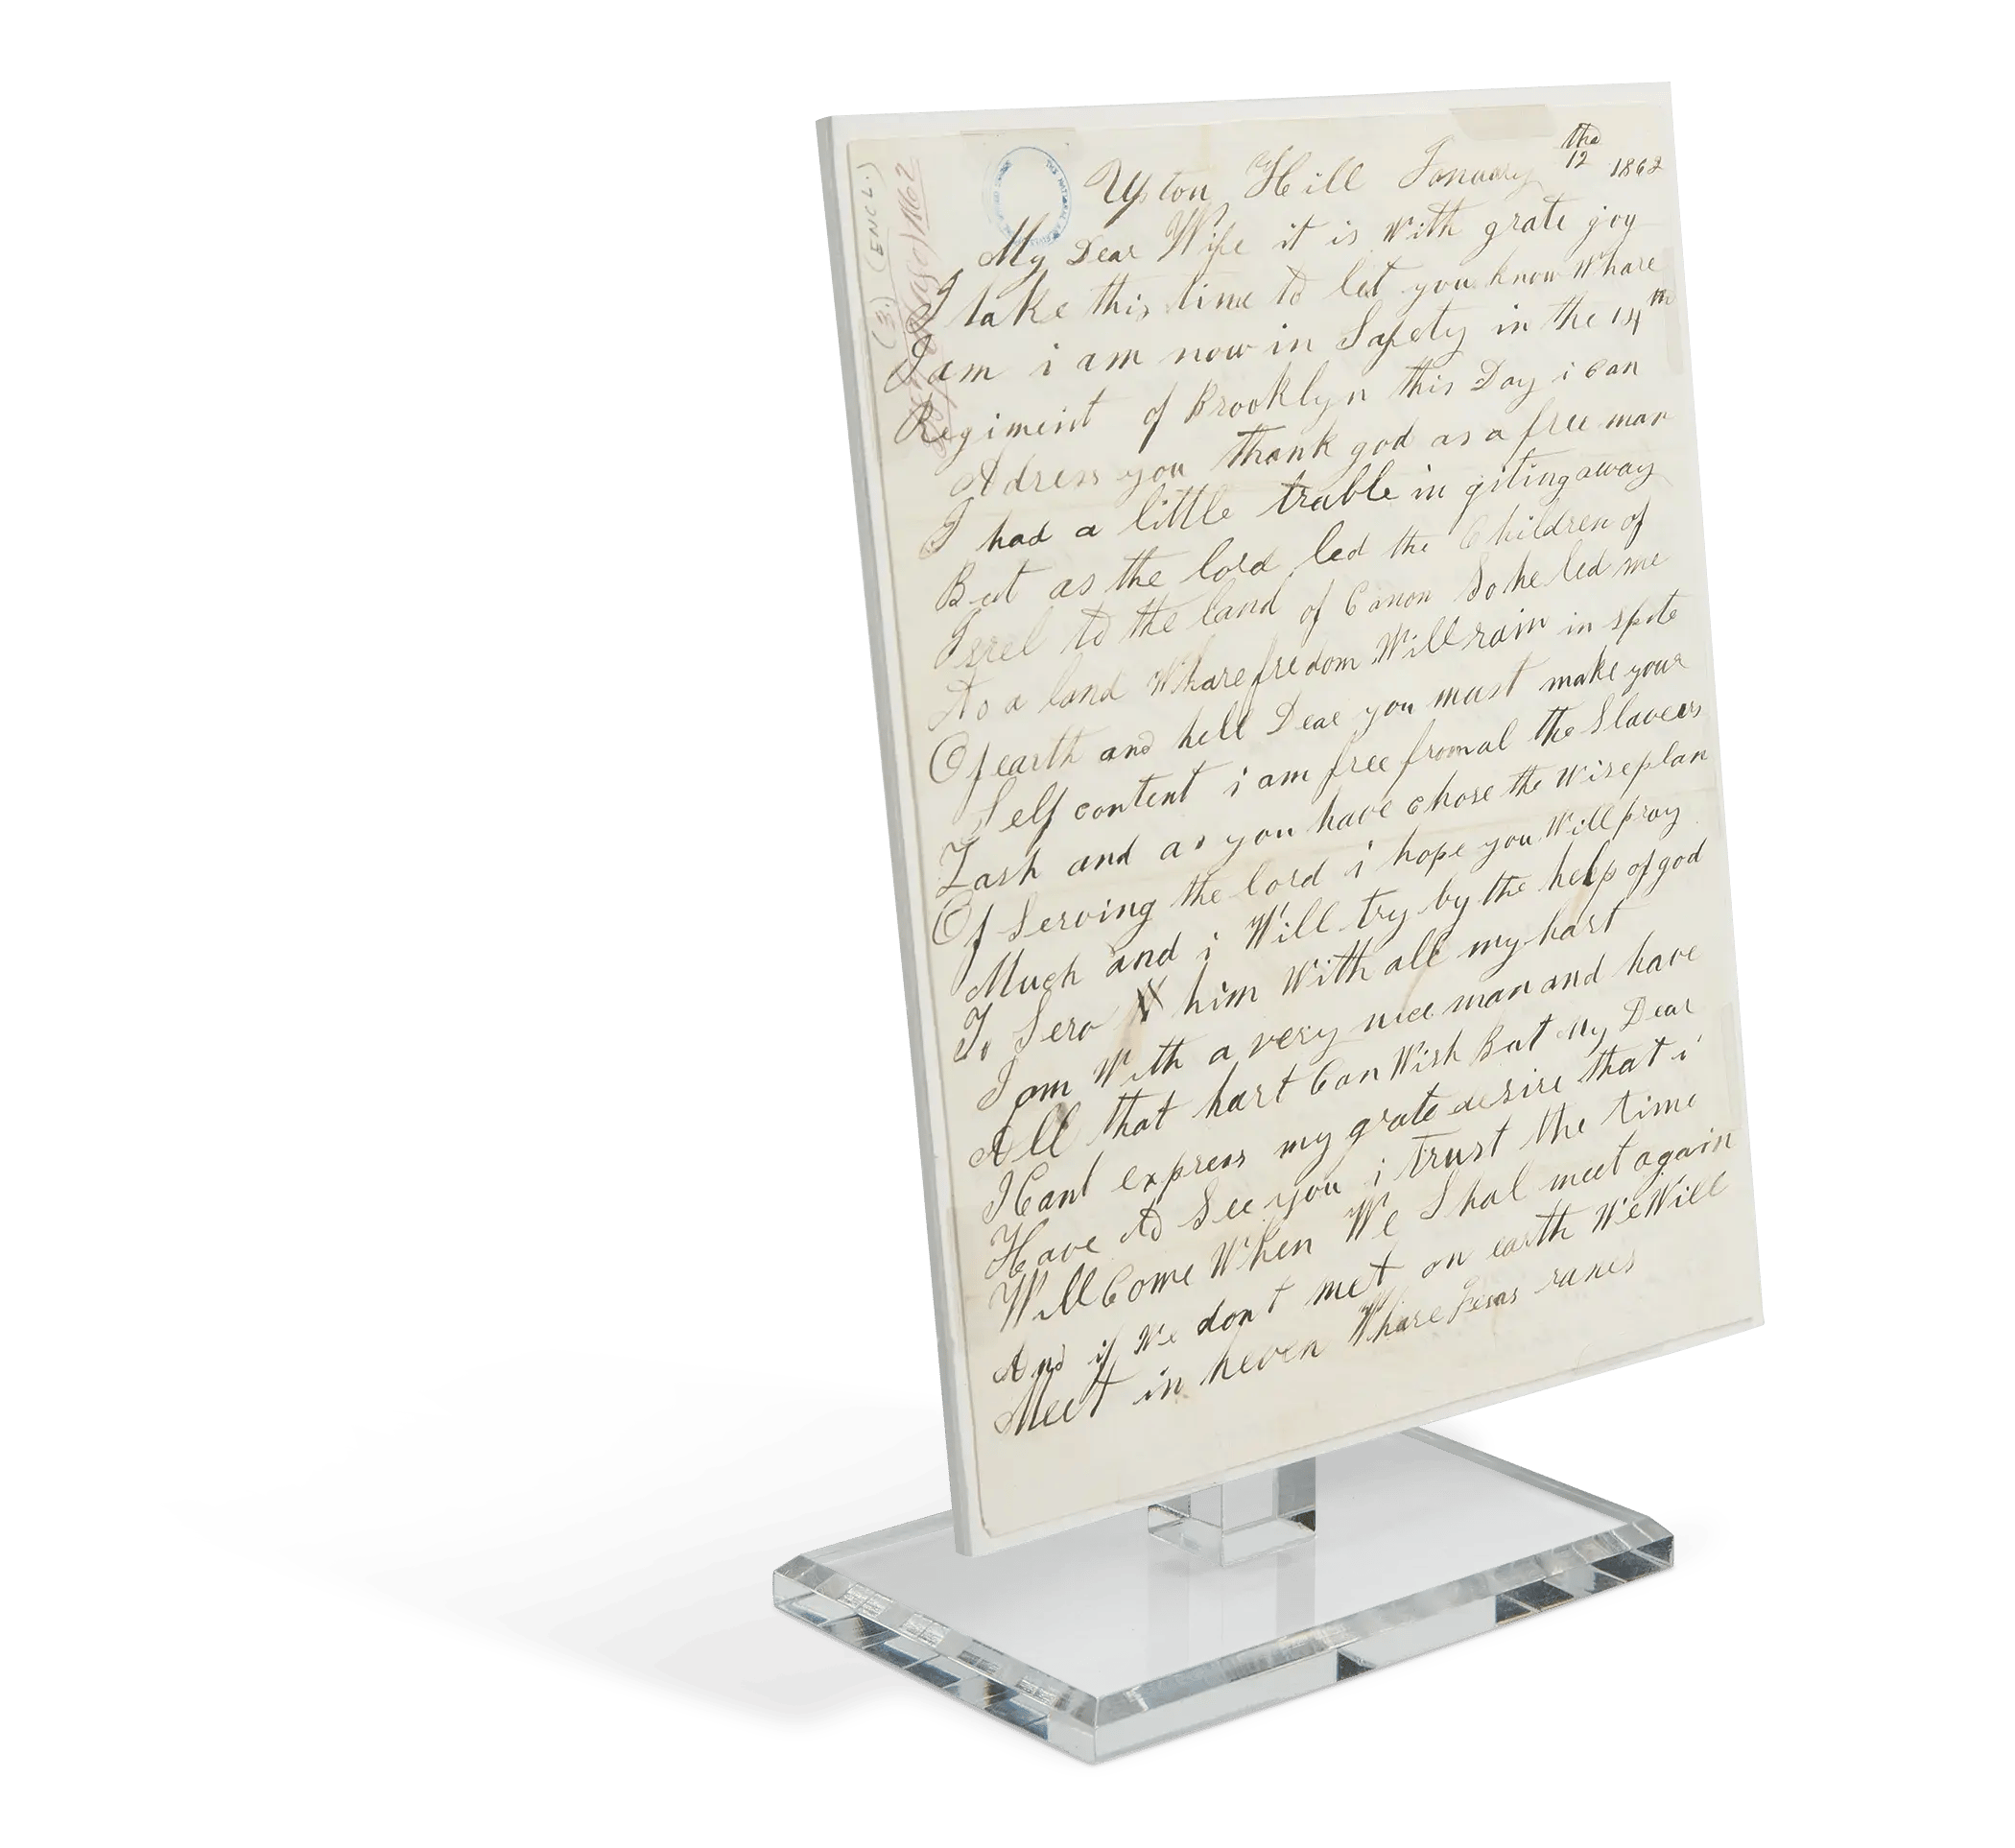 Upton Hill January the 12 1862
My Dear Wife it is with grate joy
I take this time to let you know Whare
I am i am now in Safety in the 14th
Regiment of Brooklyn this Day i can
Adress you thank god as a free man
I had a little truble in giting away
But as the lord led the Children of
Isrel to the land of Canon So he led me
To a land Whare fredom Will rain in spite
Of earth and hell Dear you must make your
Self content i am free from al the Slavers
Lash and as you have chose the Wise plan
Of Serving the lord i hope you Will pray
Much and i Will try by the help of god
To Serv him With all my hart
I am With a very nice man and have
All that hart Can Wish But My Dear
I Cant express my grate desire that i
Have to See you i trust the time
Will Come When We Shal meet again
And if We dont met on earth We Will
Meet in heven Whare Jesas ranes
(3.) (ENCL.)
1862